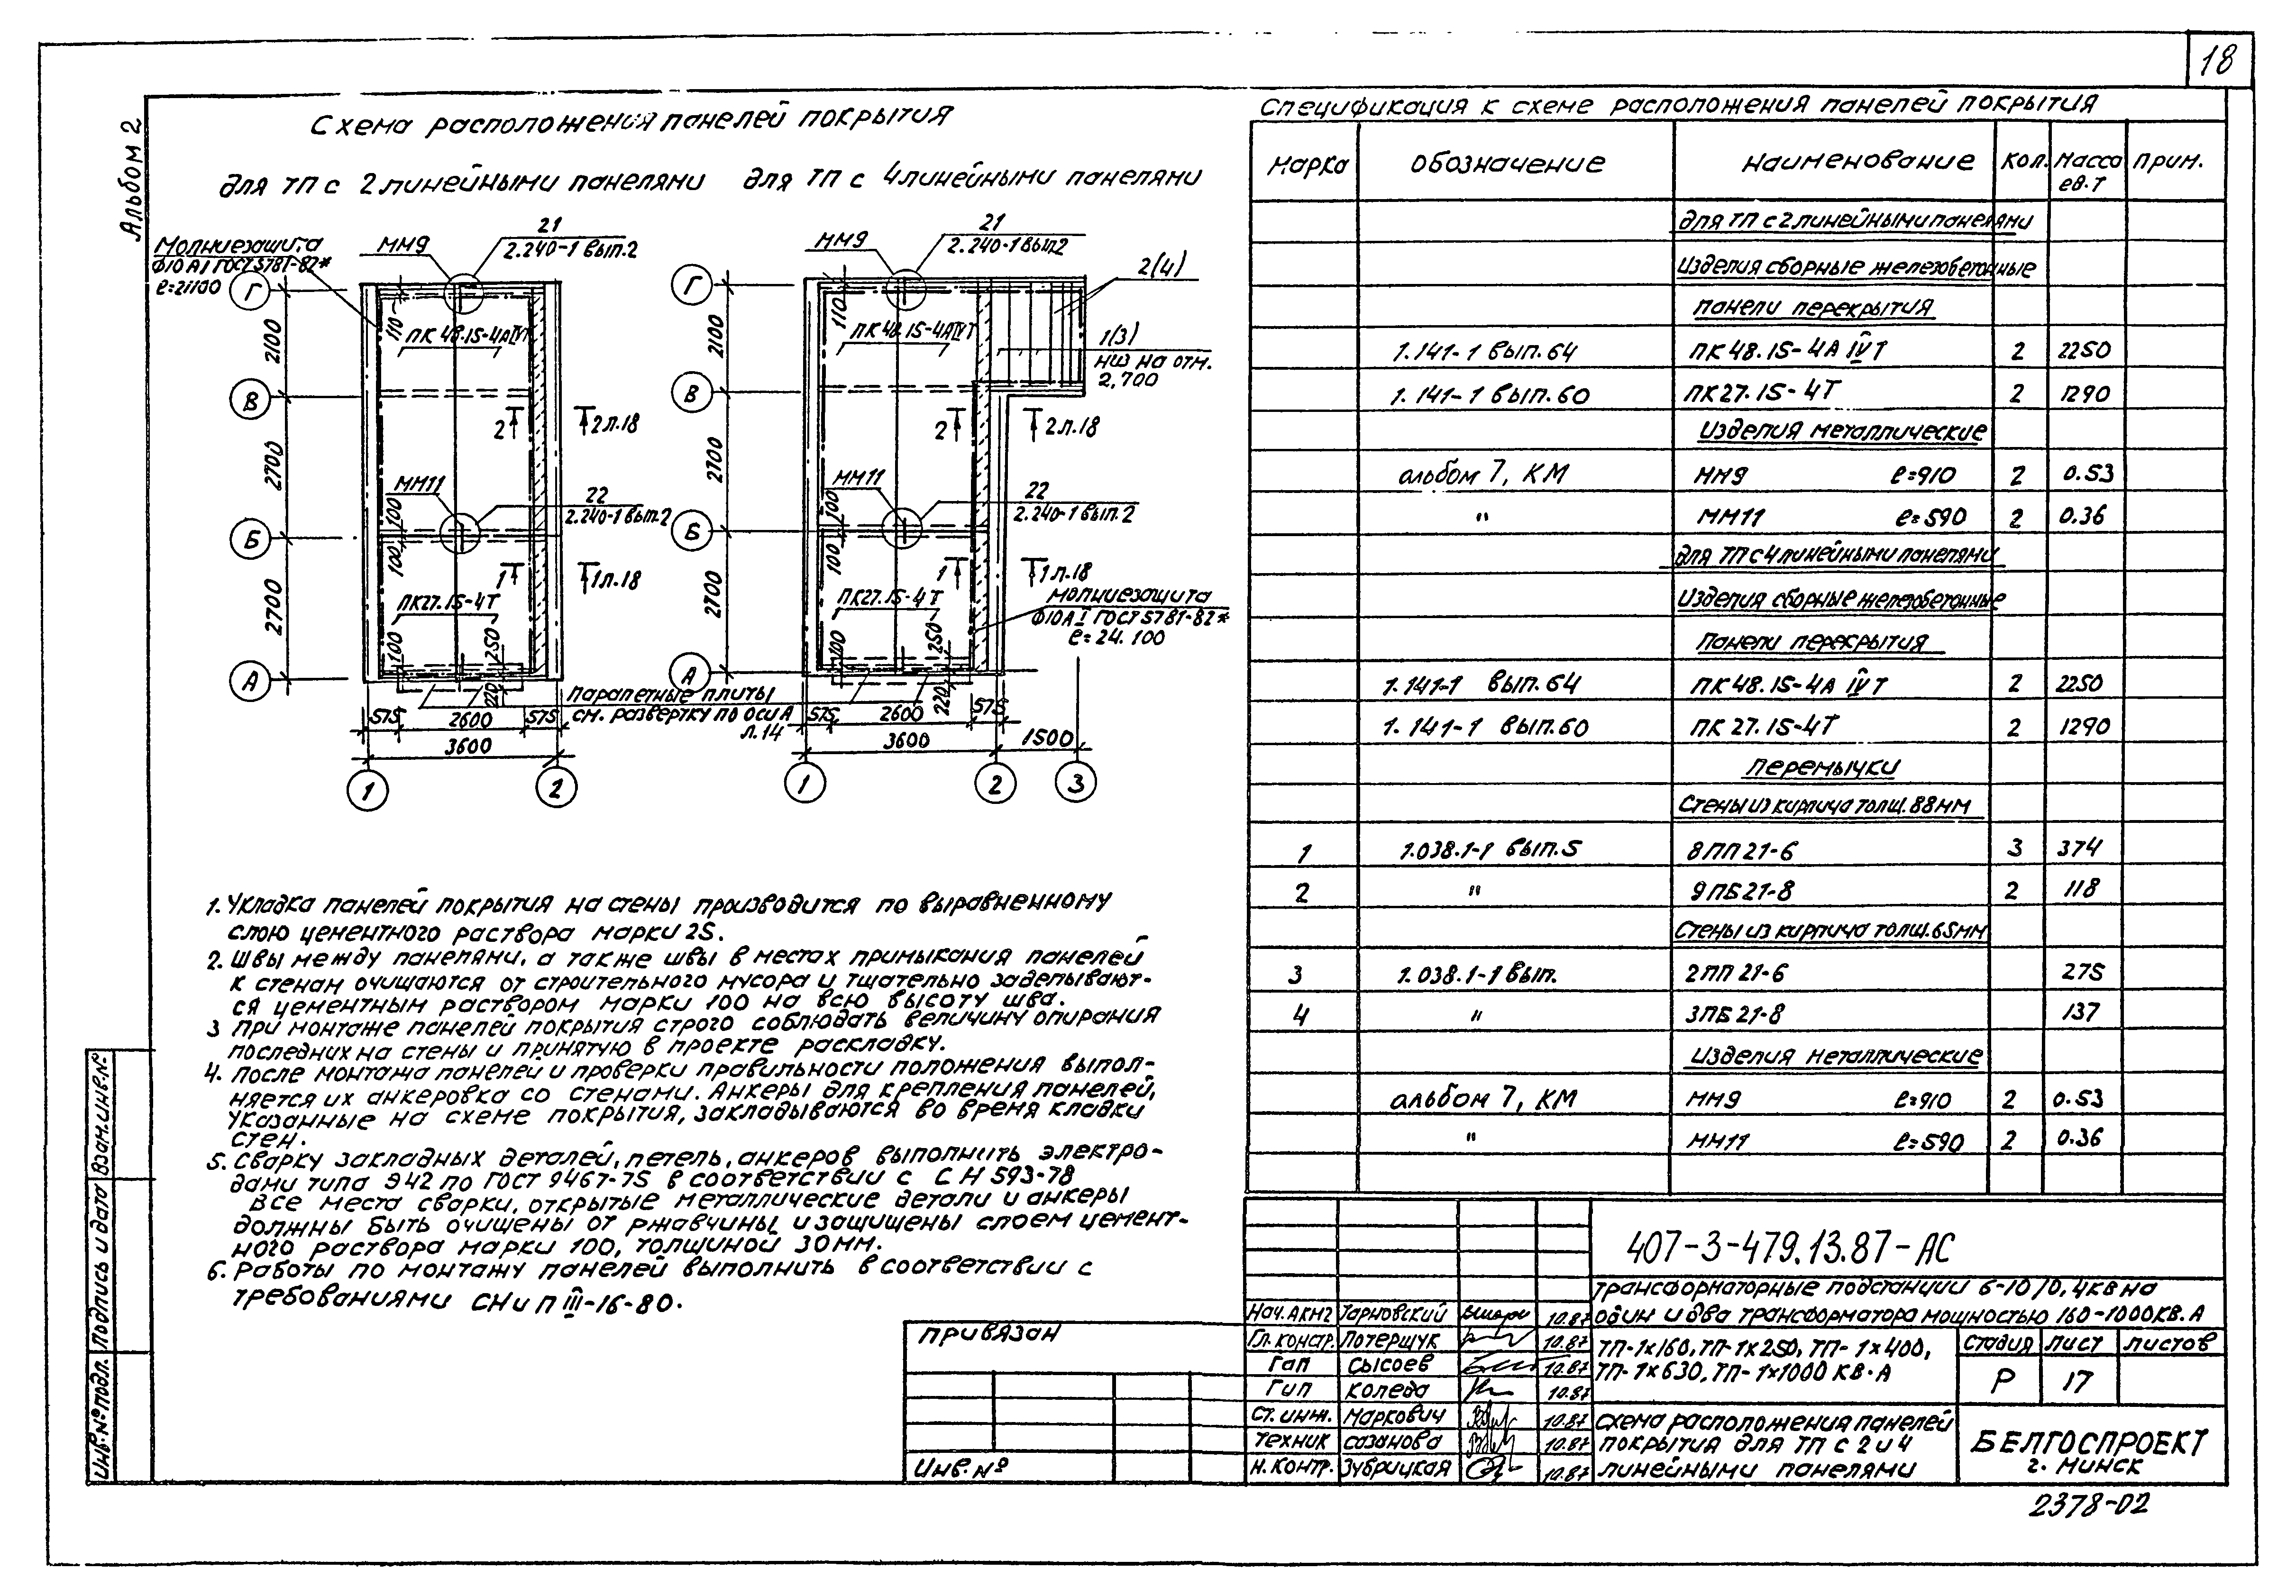 18
Альбом 2
Схема расположения панелей покрытия
для ТП с 2 линейными панелями
для ТП с 4 линейными панелями
Молниезащита
Ф10 АI ГОСТ 5781-82*
ℓ=21100
ММ9
21
2.240-1 вып.2
Г
110
ПК 48.15-4АIVТ
2100
В
2
2 л.18
2700
ММ11
22
2.240-1 вып.2
100
Б
100
1
1 л.18
2700
ПК27.15-4Т
100
250
А
220
Парапетные плиты
см. развертку по оси А
л.14
575
2600
575
3600
1
2
ММ9
21
2.240-1 вып.2
2(4)
Г
110
ПК 48.15-4АIVТ
1(3)
низ на отм.
2,700
2100
В
2
2 л.18
2700
ММ11
22
2.240-1 вып.2
100
Б
100
1
1 л.18
молниезащита
Ф10АI ГОСТ 5781-82*
ℓ=24.100
2700
ПК27.15-4Т
100
250
А
220
575
2600
575
3600
1500
1
2
3
1. Укладка панелей покрытия на стены производится по выравненному
слою цементного раствора марки 25.
2. Швы между панелями, а также швы в местах примыкания панелей
к стенам очищаются от строительного мусора и тщательно заделывают-
ся цементным раствором марки 100 на всю высоту шва.
3 При монтаже панелей покрытия строго соблюдать величину опирания
последних на стены и принятую в проекте раскладку.
4. После монтажа панелей и проверки правильности положения выпол-
няется их анкеровка со стенами. Анкеры для крепления панелей,
указанные на схеме покрытия, закладываются во время кладки
стен.
5. Сварку закладных деталей, петель, анкеров выполнить электро-
дами типа Э42 по ГОСТ 9467-75 в соответствии с СН 593-78
Все места сварки, открытые металлические детали и анкеры
должны быть очищены от ржавчины и защищены слоем цемент-
ного раствора марки 100, толщиной 30мм.
6. Работы по монтажу панелей выполнить в соответствии с
требованиями СНиП III-16-80.
Спецификация к схеме расположения панелей покрытия
Марка обозначение наименование Кол. Масса ед.т Прим.
для ТП с 2 линейными панелями
Изделия сборные железобетонные
панели перекрытия
1.141-1 вып.64 ПК 48.15-4А IVТ 2 2250
1.141-1 вып.60 ПК27.15-4Т 2 1290
Изделия металлические
альбом 7, КМ ММ9 ℓ=910 2 0.53
" ММ11 ℓ=590 2 0.36
для ТП с 4 линейными панелями
Изделия сборные железобетонные
Панели перекрытия
1.141-1 вып.64 ПК 48.15-4А IVТ 2 2250
1.141-1 вып.60 ПК 27.15-4Т 2 1290
Перемычки
Стены из кирпича толщ.88мм
1 1.038.1-1 вып.5 8ПП 21-6 3 374
2 " 9ПБ21-8 2 118
Стены из кирпича толщ.65мм
3 1.038.1-1 вып. 2ПП 21-6 275
4 " 3ПБ 21-8 137
Изделия металлические
альбом 7, КМ ММ9 ℓ=910 2 0.53
" ММ11 ℓ=590 2 0.36
407-3-479.13.87-АС
Трансформаторные подстанции 6-10/0,4кв на
один и два трансформатора мощностью 160-1000кв.А
Нач.АКМ2 Тарновский 10.87
Гл.констр. Потерщук 10.87
Гап Сысоев 10.87
Гип Коледа 10.87
Ст.инж. Маркович 10.87
Техник Сазанова 10.87
Н.контр. Зубрицкая 10.87
ТП-1х160, ТП-1х250, ТП-1х400,
ТП-1х630, ТП-1х1000 КВ.А
стадия лист листов
Р 17
схема расположения панелей
покрытия для ТП с 2 и 4
линейными панелями
БЕЛГОСПРОЕКТ
г. Минск
Привязан
Инв.№
Инв.№подл. Подпись и дата Взам.инв.№
2378-02